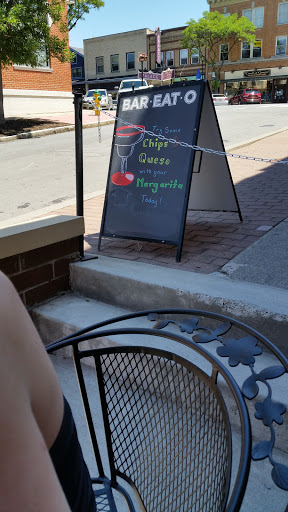 BAR·EAT·O
Try Some
Chips
Queso
with your
Margarita
Today!